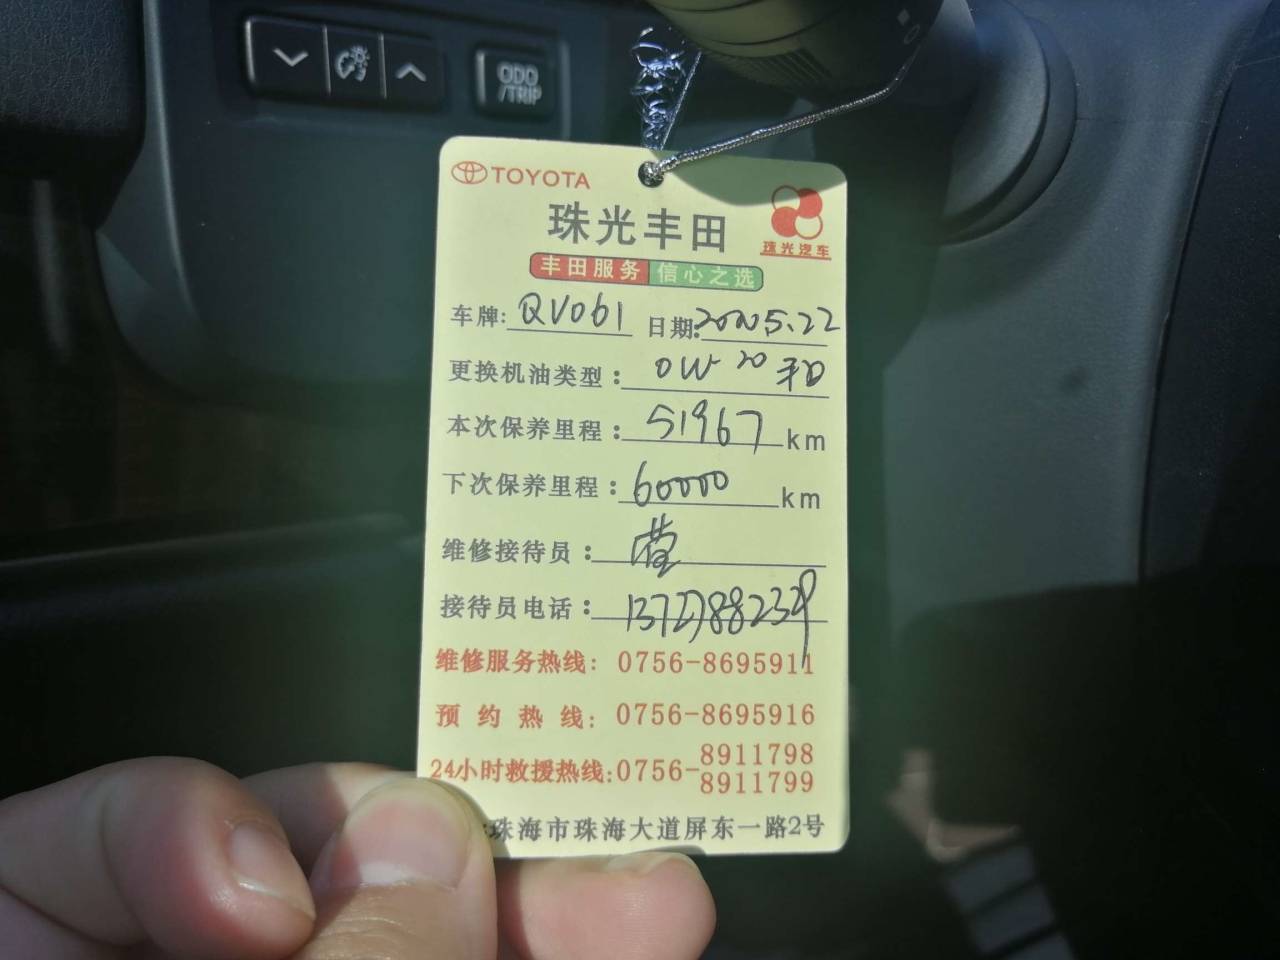 ODO
/TRIP
TOYOTA
珠光丰田
珠光汽车
丰田服务 信心之选
车牌: QV061 日期: 2020.5.22
更换机油类型: 0W 20
本次保养里程: 51967 km
下次保养里程: 60000 km
维修接待员:
接待员电话:
维修服务热线: 0756-8695911
预约热线: 0756-8695916
24小时救援热线: 0756-8911798
8911799
珠海市珠海大道屏东一路2号